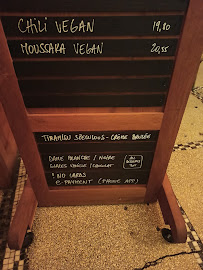 CHILI VEGAN 19,80
MOUSSAKA VEGAN 20,55
TIRAMISU SPECULOOS - CRÈME BRULÉE
DAME BLANCHE / NOIRE
! NO CARDS
E-PAYMENT (PHONE APP)